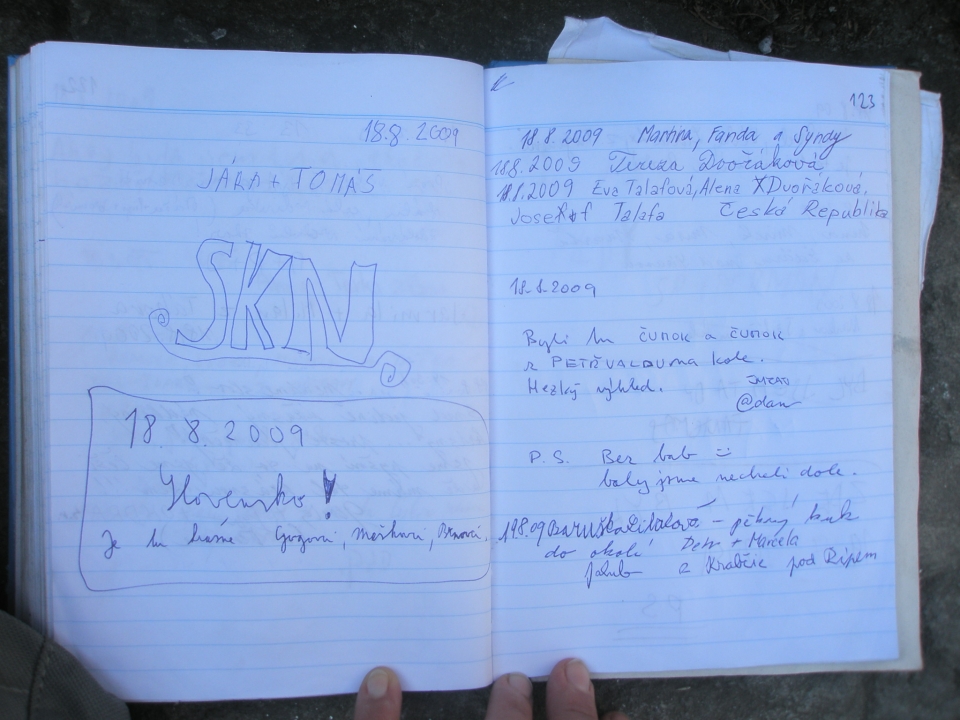 18.8. 2009
JÁRA + TOMÁŠ
SKN
18. 8. 2009
Slovensko!
Je tu krásně
123
18.8.2009 Martina, Fanda a Syndy
18.8.2009 Tereza Dvořáková
18.8.2009 Eva Talafová, Alena Dvořáková,
Josef Talafa Česká Republika
18.8.2009
Byli tu ČUNOK a ČUNOK
z PETŘVALDU na kole.
Hezký výhled.
@dam
P.S. Bez bab
baby jsme nechali dole.
19.8.09 - pěkný kuk
do okolí Petr + Marcela
z Krabčic pod Řípem